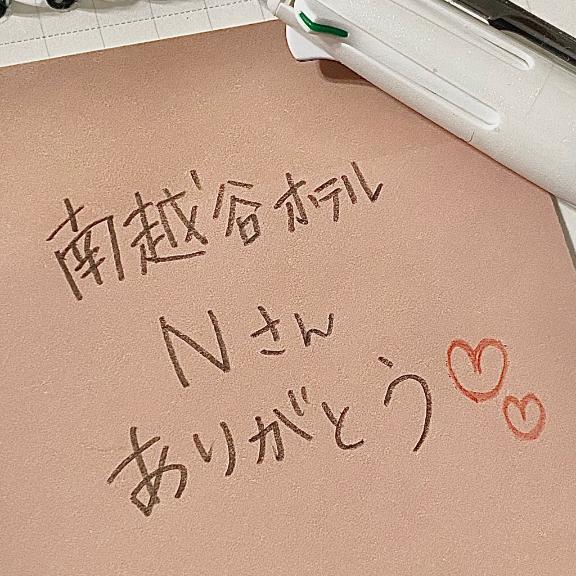 南越谷ホテル
Nさん
ありがとう♡♡